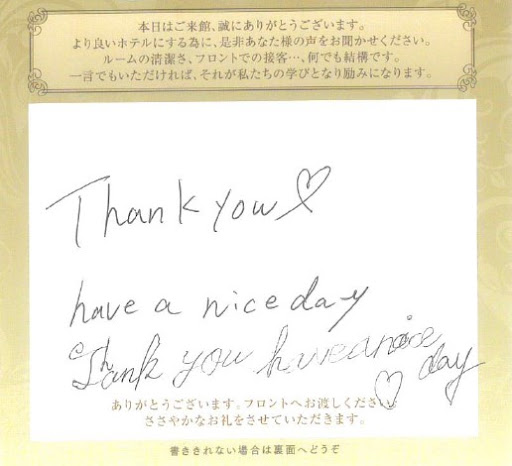 本日はご来館、誠にありがとうございます。
より良いホテルにする為に、是非あなた様の声をお聞かせください。
ルームの清潔さ、フロントでの接客…、何でも結構です。
一言でもいただければ、それが私たちの学びとなり励みになります。
Thank you♡
have a nice day
Thank you have a nice day
♡
ありがとうございます。フロントへお渡しください。
ささやかなお礼をさせていただきます。
書ききれない場合は裏面へどうぞ